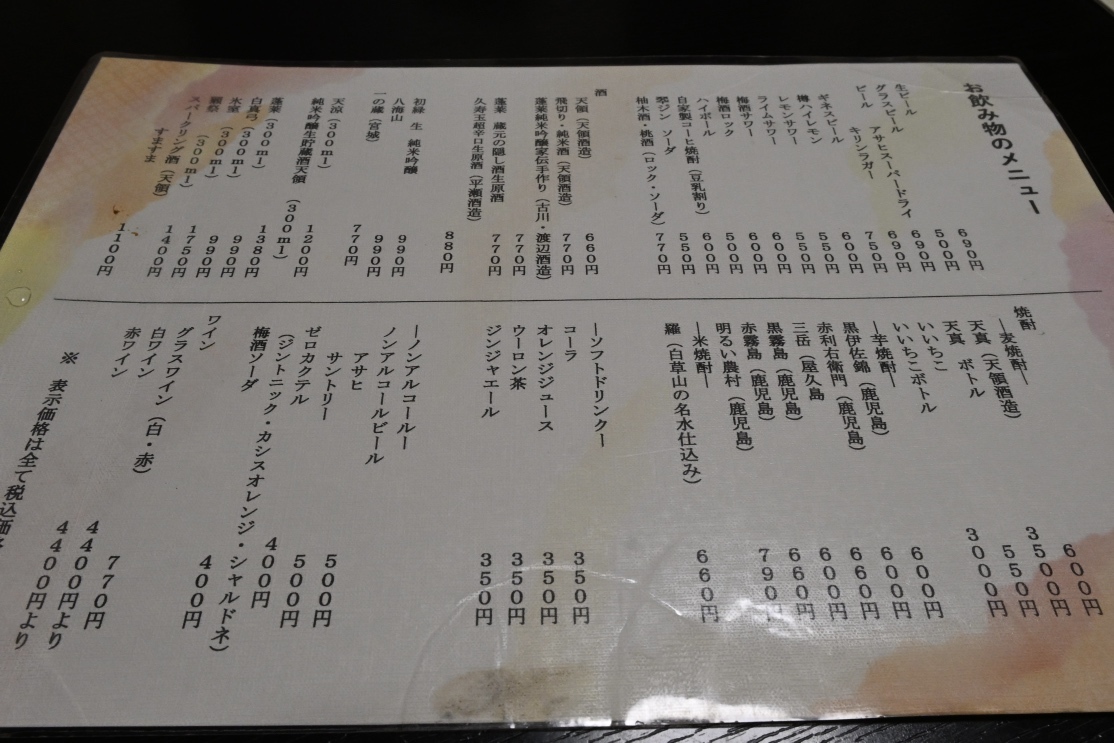 お飲み物のメニュー
生ビール 690円
グラスビール 500円
ビール アサヒスーパードライ 690円
キリンラガー 690円
ギネスビール 750円
樽ハイレモン 600円
レモンサワー 550円
ライムサワー 550円
梅酒サワー 600円
梅酒ロック 500円
ハイボール 600円
自家製コーヒ焼酎(豆乳割り) 550円
翠ジン ソーダ 550円
柚木酒・桃酒(ロック・ソーダ) 770円
酒
天領(天領酒造) 660円
飛切り・純米酒(天領酒造) 770円
蓬莱純米吟醸家伝手作り(古川・渡辺酒造)
蓬莱 蔵元の隠し酒生原酒 770円
久寿玉超辛口生原酒(平瀬酒造) 770円
初緑 生 純米吟醸 880円
八海山 990円
一の蔵(宮城) 990円
天涼(300ml) 770円
純米吟醸生貯蔵酒天領(300ml) 1200円
蓬莱(300ml) 1380円
白真弓(300ml) 990円
氷室(300ml) 990円
獺祭(300ml) 1750円
スパークリング酒(天領) 1400円
すますま 1100円
焼酎
―麦焼酎―
天真(天領酒造) 600円
天真 ボトル 3500円
いいちこ 550円
いいちこボトル 3000円
―芋焼酎―
黒伊佐錦(鹿児島) 600円
赤利右衛門(鹿児島) 600円
三岳(屋久島 660円
黒霧島(鹿児島) 600円
赤霧島(鹿児島) 660円
明るい農村(鹿児島) 790円
―米焼酎―
羅(白草山の名水仕込み) 660円
―ソフトドリンクー
コーラ 350円
オレンジジュース 350円
ウーロン茶 350円
ジンジャエール 350円
―ノンアルコールー
ノンアルコールビール
アサヒ 500円
サントリー 500円
ゼロカクテル 400円
(ジントニック・カシスオレンジ・シャルドネ)
梅酒ソーダ 400円
ワイン
グラスワイン(白・赤) 770円
白ワイン 4400円より
赤ワイン 4400円より
※ 表示価格は全て税込価